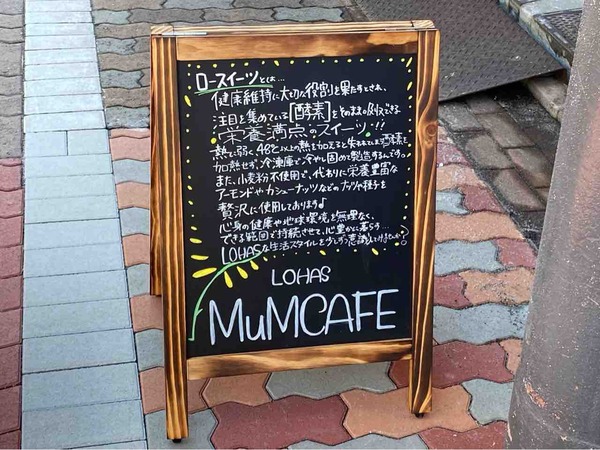 ロースイーツとは…
健康維持に大切な役割を果たすとされ、
注目を集めている[酵素]をそのまま吸収できる
栄養満点のスイーツ!!
熱に弱く48℃以上の熱を加えると失われてしまう酵素を
加熱せず、冷凍庫で冷やし固めて製造するんです。
また、小麦粉不使用で、代わりに栄養豊富な
アーモンドやカシューナッツなどのナッツや種子を
贅沢に使用しております♪
心身の健康や地球環境を無理なく、
できる範囲で持続させて、心豊かに暮らす…
LOHASな生活スタイルを少しずつ意識してけませんか?
LOHAS
MuMCAFE